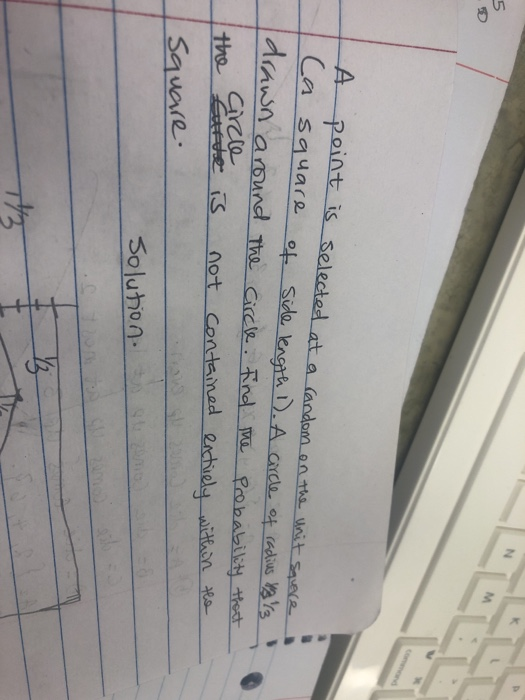 A point is selected at a random on the unit square
(a square of side length 1). A circle of radius 1/3
drawn around the circle. Find the probability that
the circle is not contained entirely within the
square.
Solution.
1/3
1/3
N
M
K
L
command